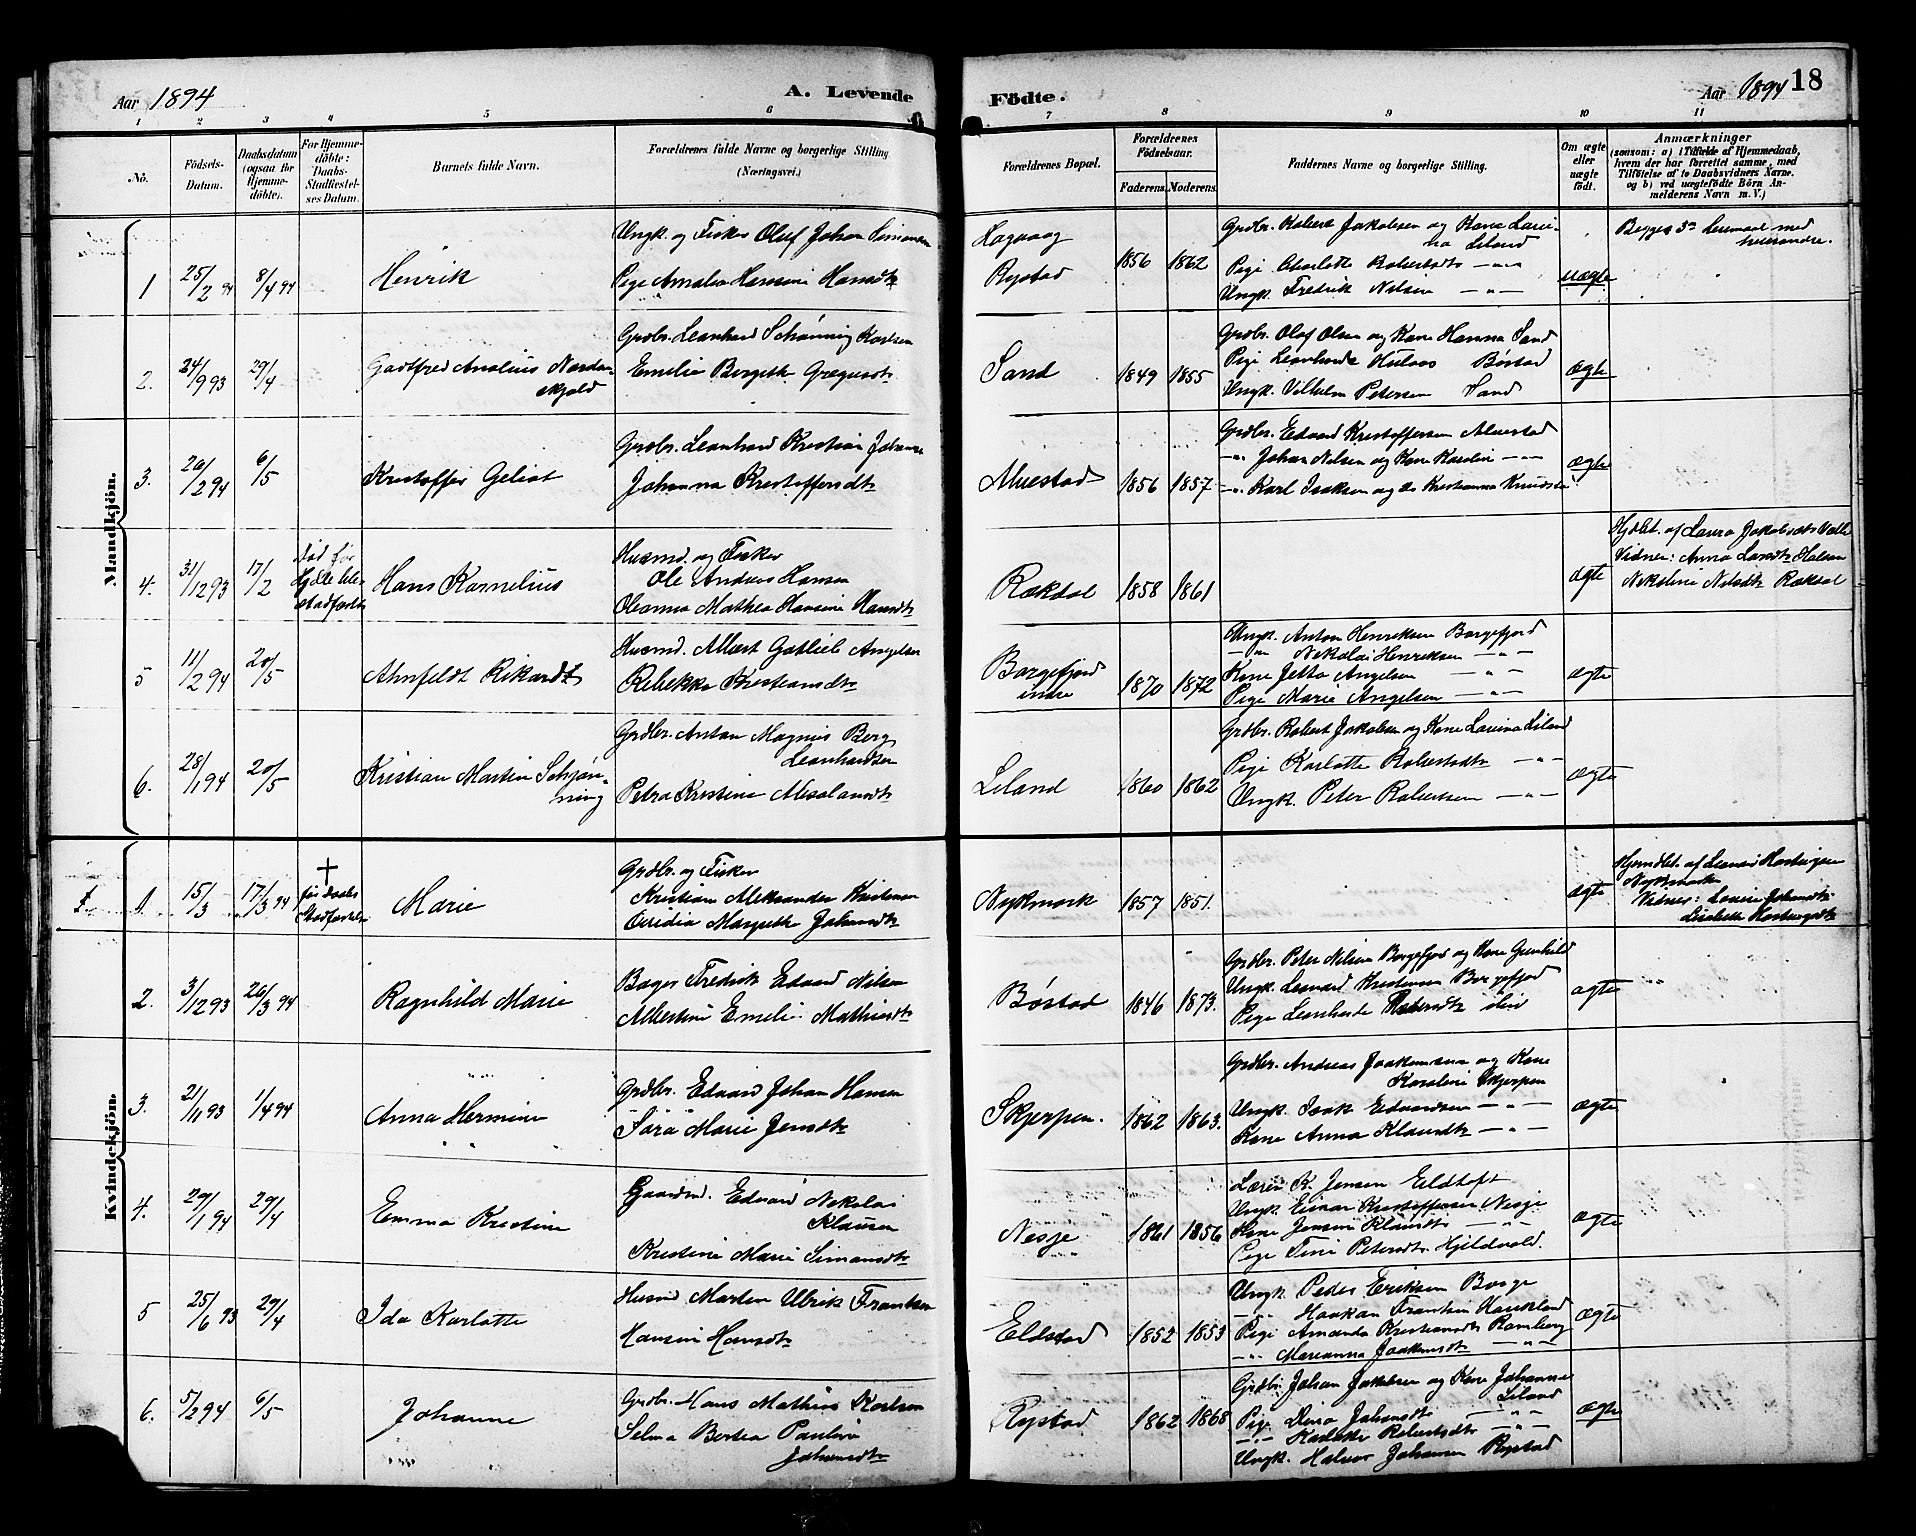 Aar 1894
A. Levende
Födte.
Aar 1894
18
1 2 3 4 5 6 7 8 9 10 11
No.
Födsels-
Datum.
Daabsdatum
(ogsaa for
Hjemme-
döbte).
For Hjemme-
döbte:
Daabs-
Stadfæstel-
ses Datum.
Barnets fulde Navn.
Forældrenes fulde Navne og borgerlige Stilling
(Næringsvei.)
Forældrenes Bopæl.
Forældrenes
Födselsaar.
Faderens.
Moderens.
Faddernes Navne og borgerlige Stilling.
Om ægte
eller
uægte
födt.
Anmærkninger
(saasom: a) i Tilfælde af Hjemmedaab,
hvem der har forrettet samme, med
Tilföielse af to Daabsvidners Navne,
og b) ved uægtefödte Börn An-
melderens Navn m. V.)
Mandkjön.
1 25/2 94 8/4 94 Henrik
Ungk. og Fisker Oluf Johan Simonsen
Pige Amalia Hansine Hansdtr
Rystad
1856 1862
Grdbr. Robert Jakobsen og Kone Lovi-
na Liland
Pige Charlotte Robertsdtr —"—
Ungk. Fredrik Nilsen —"—
uægte
Begges 3die Leiermaal med
hverandre.
2. 24/9 93 29/4 Godtfred Analius Norden-
skjold
Grdbr. Leonhard Schønning Karlsen
Emelie Bergithe Gregusdtr
Sand
1849 1855
Grdbr. Olaf Olsen og Kone Hanna Sand
Pige Leonharda Bøstad
Ungk. Vilhelm Petersen Sand
ægte
3. 26/2 94 6/5 Kristoffer Geliot
Grdbr. Leonhard Kristian Johansen
Johanna Kristoffersdtr
Alvestad
1856 1857
Grdbr. Edvard Kristoffersen Alvestad
—"— Johan Nilsen og Kone Karolin —"—
—"— Karl Isaksen og do Kristianna
ægte
4. 31/12 93 17/2 død før
stadfæstelse
Hans Kornelius
Husmd. og Fisker
Ole Andreas Hansen
Oleanna Mathea Hansine Hansdtr
Rækdal
1858 1861
ægte
Hjdbt. af Laura Jakobsdtr Valle
Vidner: Anna Larsdtr
Nikoline Nilsdtr Rækdal
5 11/2 94 20/5 Ahnfeldt Rikardt
Husmd. Albert Gotlieb Angelsen
Rebekka Kristiansdtr
Borgefjord
indre
1870 1872
Ungk. Anton Henriksen Borgefjord
—"— Nikolai Henriksen —"—
Kone Jetta Angelsen —"—
Pige Marie Angelsen —"—
ægte
6. 28/1 94 20/5 Kristian Martin Schjøn-
ning
Grdbr. Anton Magnus Berg
Leonhardsen
Petra Kristine Absalonsdtr
Liland
1860 1862
Grdbr. Robert Jakobsen og Kone Lovina Liland
Pige Karlotte Robertsdtr —"—
Ungk. Peter Robertsen —"—
ægte
Kvindekjön.
1. 15/3 17/3 94 † før daabs
Stadfæstelse
Marie
Grdbr. og Fisker
Kristian Aleksander Kristensen
Ovidia Margrethe Johansdtr
Nykmark
1857 1851.
ægte
Hjemdbt. af
Nykmark
Vidner: Lovise Johansdtr
2. 3/12 93 26/3 94 Ragnhild Marie
Bager Fredrik Edvard Nilsen
Albertine Emelie Mathisdtr
Bøstad
1846 1873.
Grdbr. Peter Nilsen Borgefjord og Kone Gunhild
Ungk. Leonard Kristensen Borgefjord
Pige Leonharde
ægte
3. 21/11 93 1/4 94 Anna Hermine
Grdbr. Edvard Johan Hansen
Sara Marie Jensdtr
Skjerpen.
1862 1863.
Grdbr. Andreas Joakimsen og Kone
Karoline Skjerpen
Ungk. Isak Edvardsen —"—
Kone Anna Klausdtr —"—
ægte
4. 29/1 94 29/4 Emma Kristine
Gaardmd. Edvard Nikolai
Klausen
Kristine Marie Simonsdtr
Nesje
1861 1856
Lærer K. Jensen Eldtoft
Ungk. Einar Kristoffersen Nesje
Kone Jensine Klausdtr —"—
Pige Tine Petersdtr. Hjeldvold.
ægte
5 25/6 93 29/4 Ida Karlotte
Husmd Morten Ulrik Frantsen
Hansine Hansdtr
Eldstad
1852 1853
Ungk. Peder Eriksen Borge
—"— Haakon Frantsen
Pige Amanda Kristiansdtr Ramberg
—"— Marianna Joakimsdtr —"—
ægte
6. 5/2 94 6/5 Johanne
Grdbr. Hans Mathias Karlsen
Selma Bertea Pauline
Johansdtr
Rystad
1862 1868
Grdbr. Johan Jakobsen og Kone Johanne
Liland
Pige Dina Johansdtr —"—
—"— Robertsdtr —"—
Ungk. Halvor Johansen Rystad
ægte